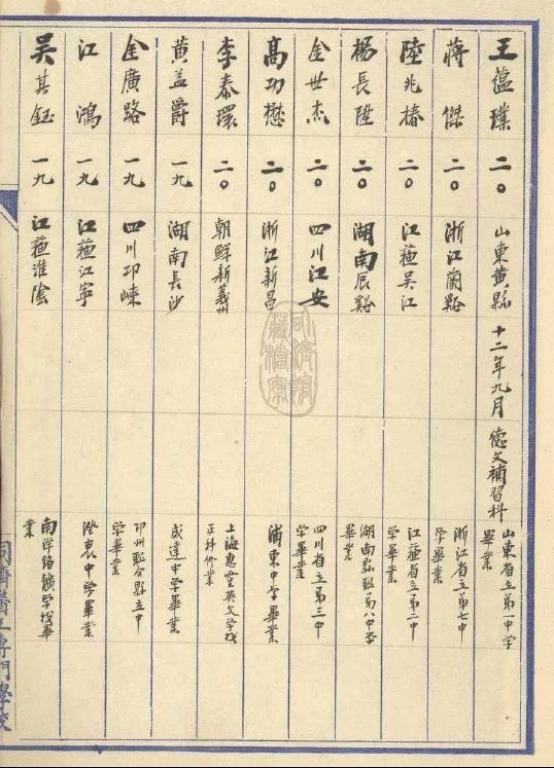 王蘊璞 二〇 山東黄縣 十二年九月 德文補習科 山東省立第一中学畢業
蒋傑 二〇 浙江蘭谿 浙江省立第七中学畢業
陸兆椿 二〇 江蘓吴江 江蘓省立第二中学畢業
楊長陞 二〇 湖南辰谿 湖南縣立第八中学畢業
金世杰 二〇 四川江安 四川省立第三中学畢業
高功懋 二〇 浙江新昌 浦東中学畢業
李泰環 二〇 朝鮮新義州 上海惠靈英文学校正科修業
黄盖爵 一九 湖南長沙 成達中学畢業
金廣路 一九 四川邛崍 邛州聫合縣立中学畢業
江鴻 一九 江蘓江寧 澄衷中学畢業
吴其鈺 一九 江蘓淮陰 南洋路鑛学校畢業
同濟醫工專門學校